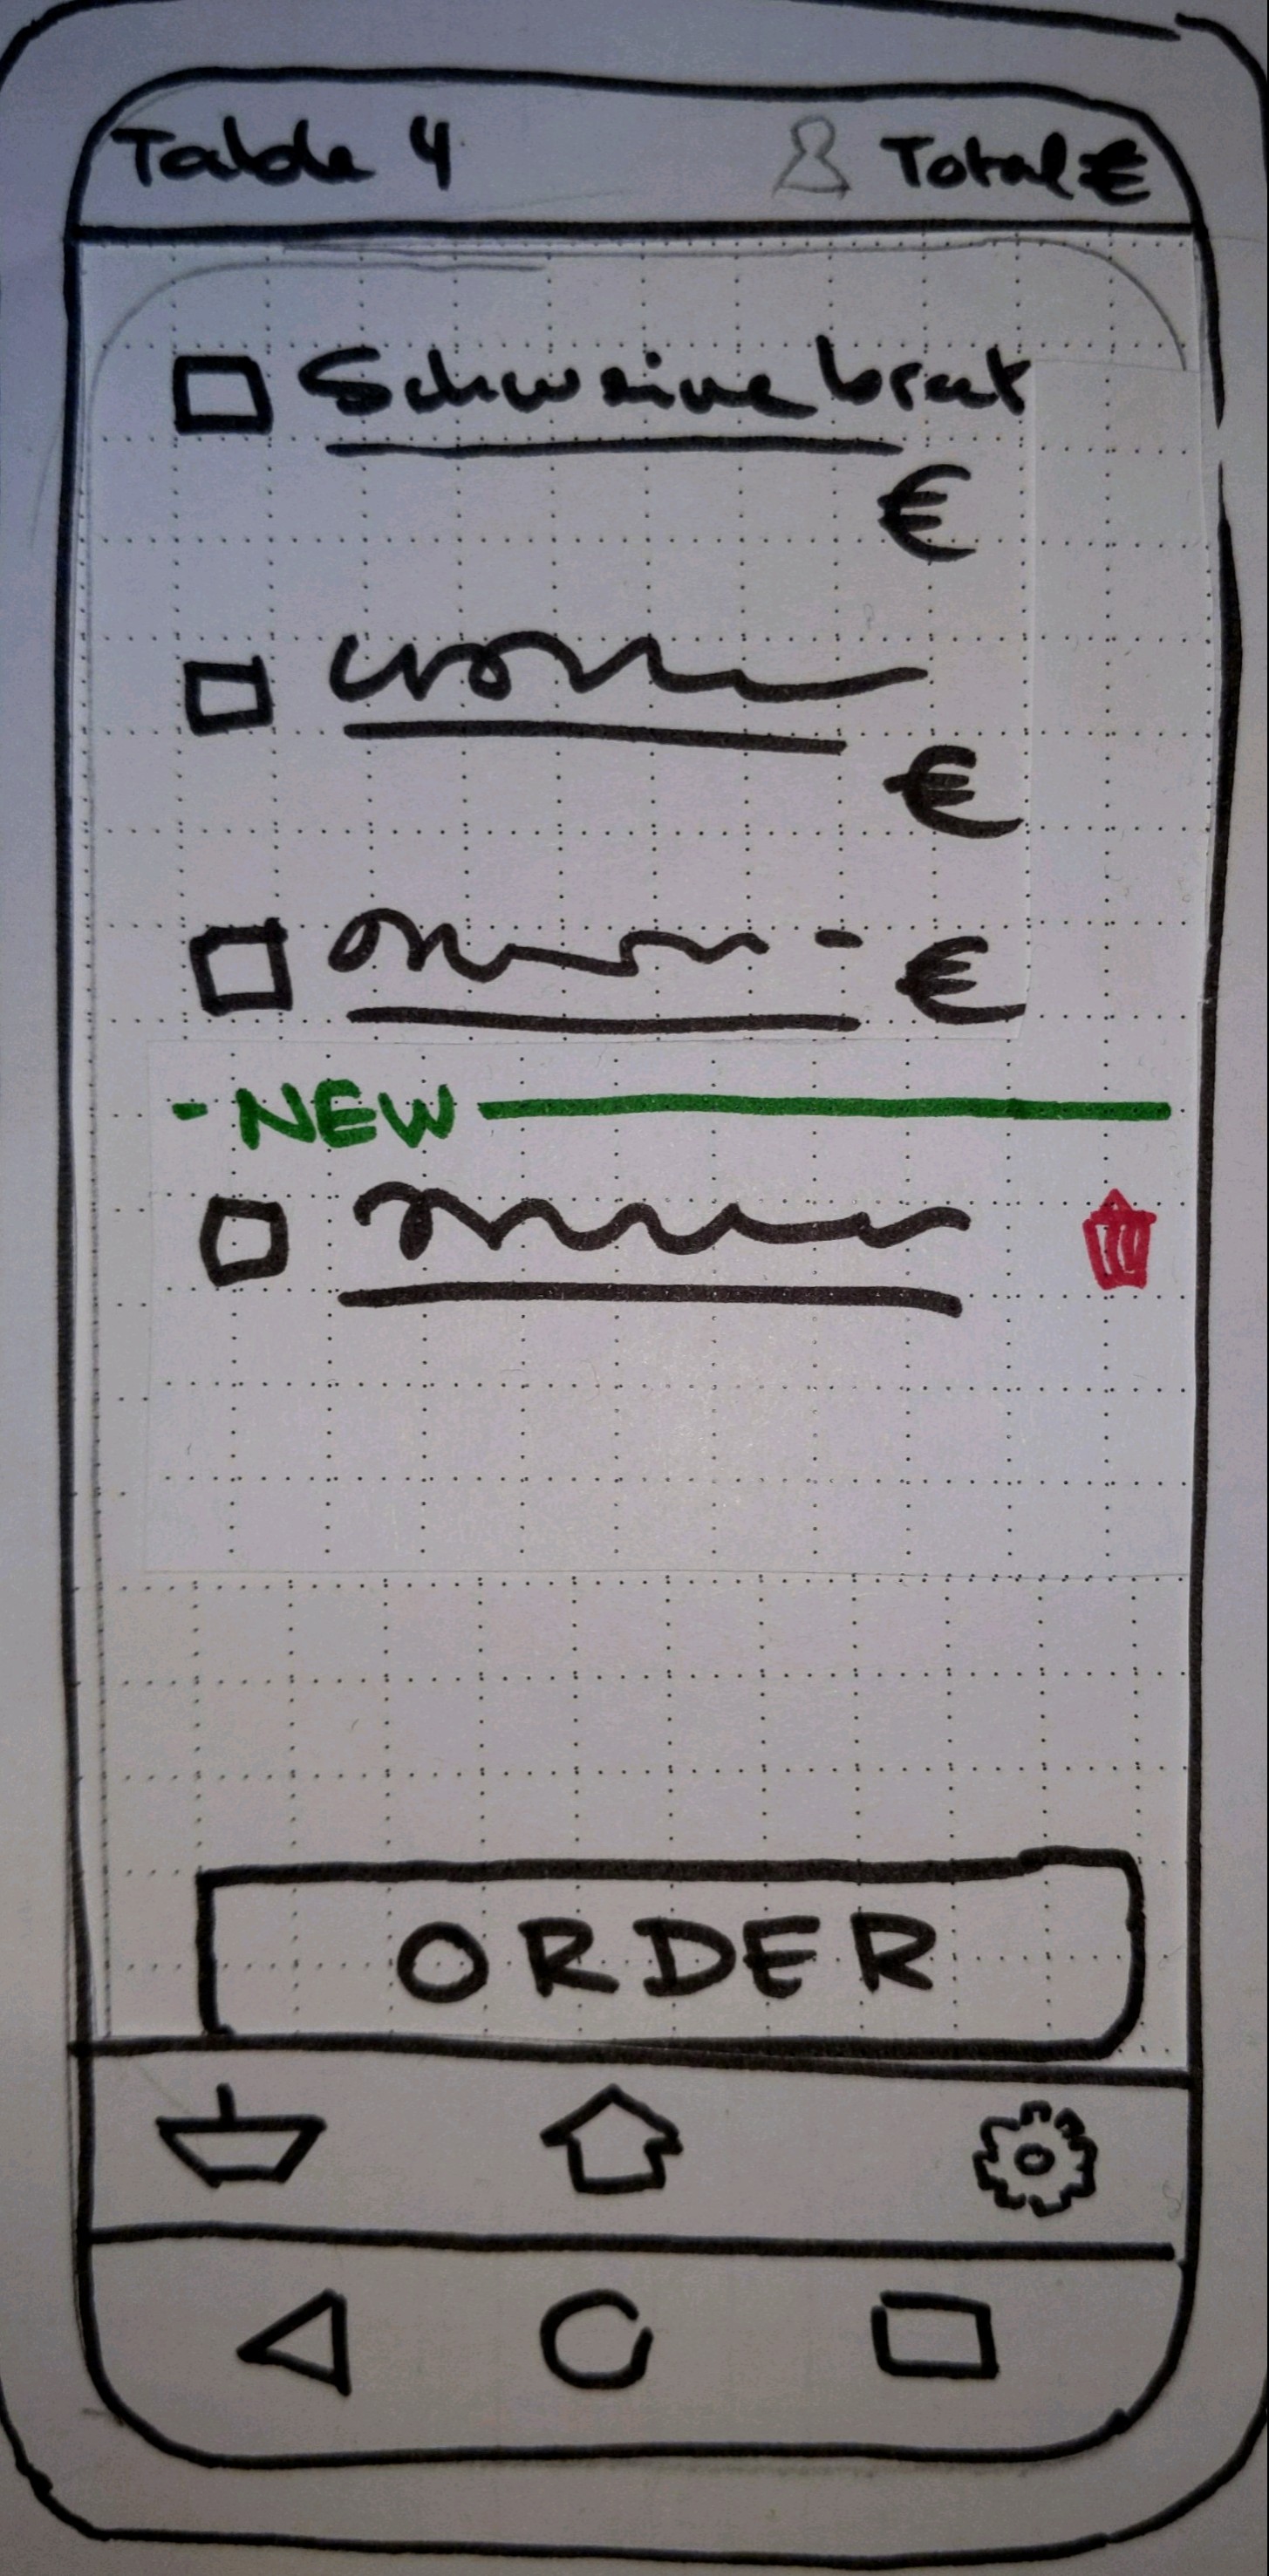 Table 4 Total €
Schweinebrat
€
€
€
NEW
ORDER